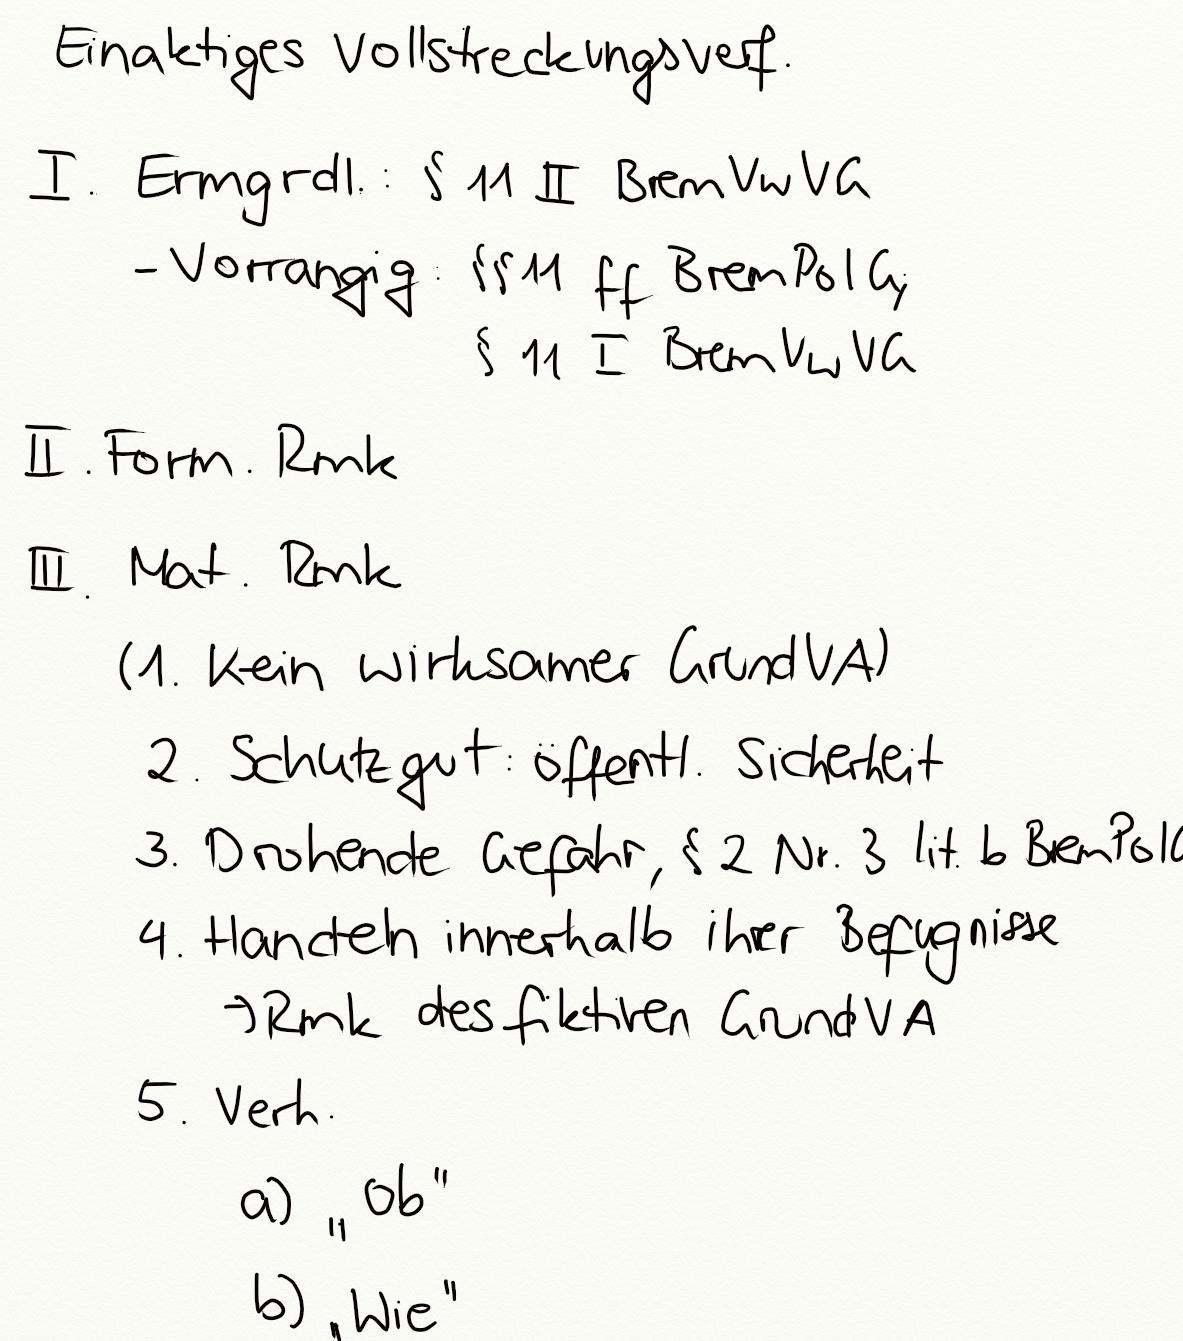 Einaktiges Vollstreckungsverf.
I. Ermgrdl.: § 11 II BremVwVG
- Vorrangig: §§ 11 ff BremPolG,
§ 11 I BremVwVG
II. Form. Rmk
III. Mat. Rmk
(1. Kein wirksamer GrundVA)
2. Schutzgut: öffentl. Sicherheit
3. Drohende Gefahr, § 2 Nr. 3 lit. b BremPolG
4. Handeln innerhalb ihrer Befugnisse
→ Rmk des fiktiven GrundVA
5. Verh.
a) „Ob"
b) „Wie"